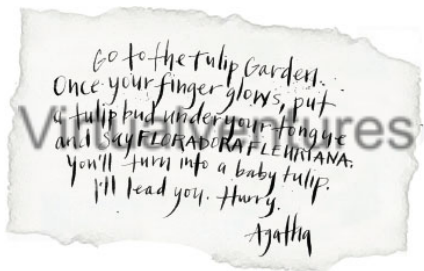 Go to the tulip Garden.
Once your finger glows, put
a tulip bud under your tongue
and say FLORADORA FLEURIANA.
You'll turn into a baby tulip.
I'll lead you. Hurry.
Agatha